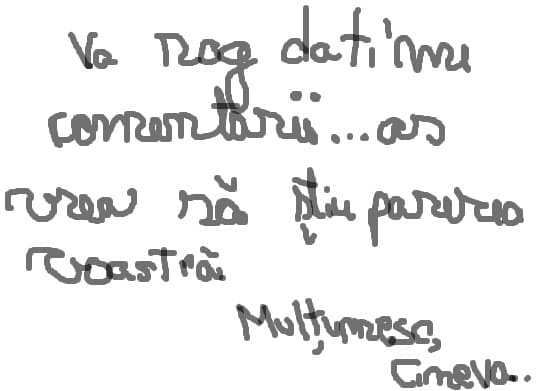 Va rog dati'mi
comentarii...as
vrea să știu parerea
voastră
Mulțumesc,
Cineva.